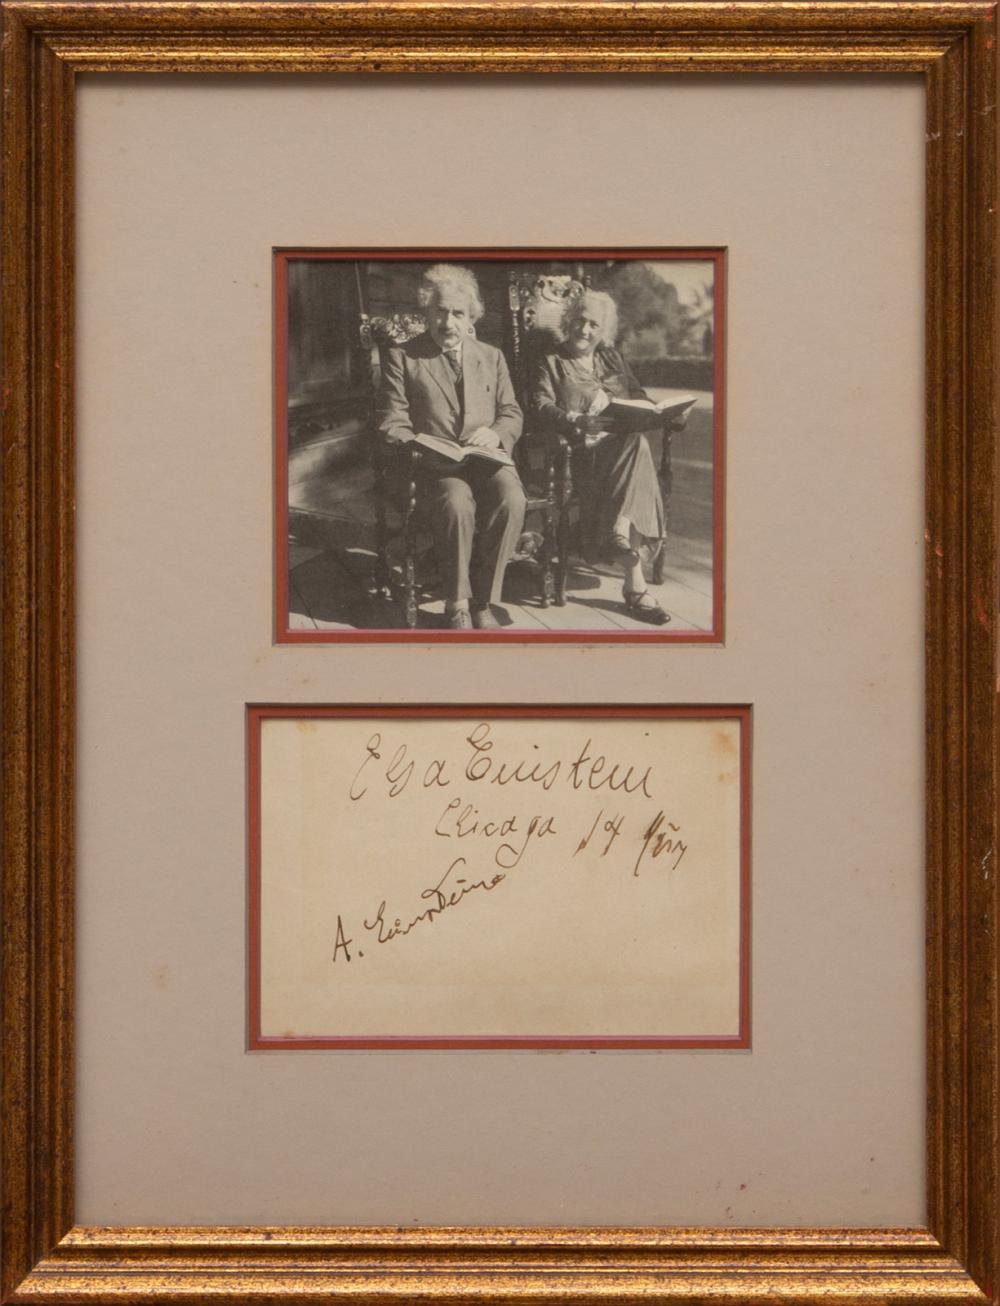 Elsa Einstein
Chicago 14
A. Einstein